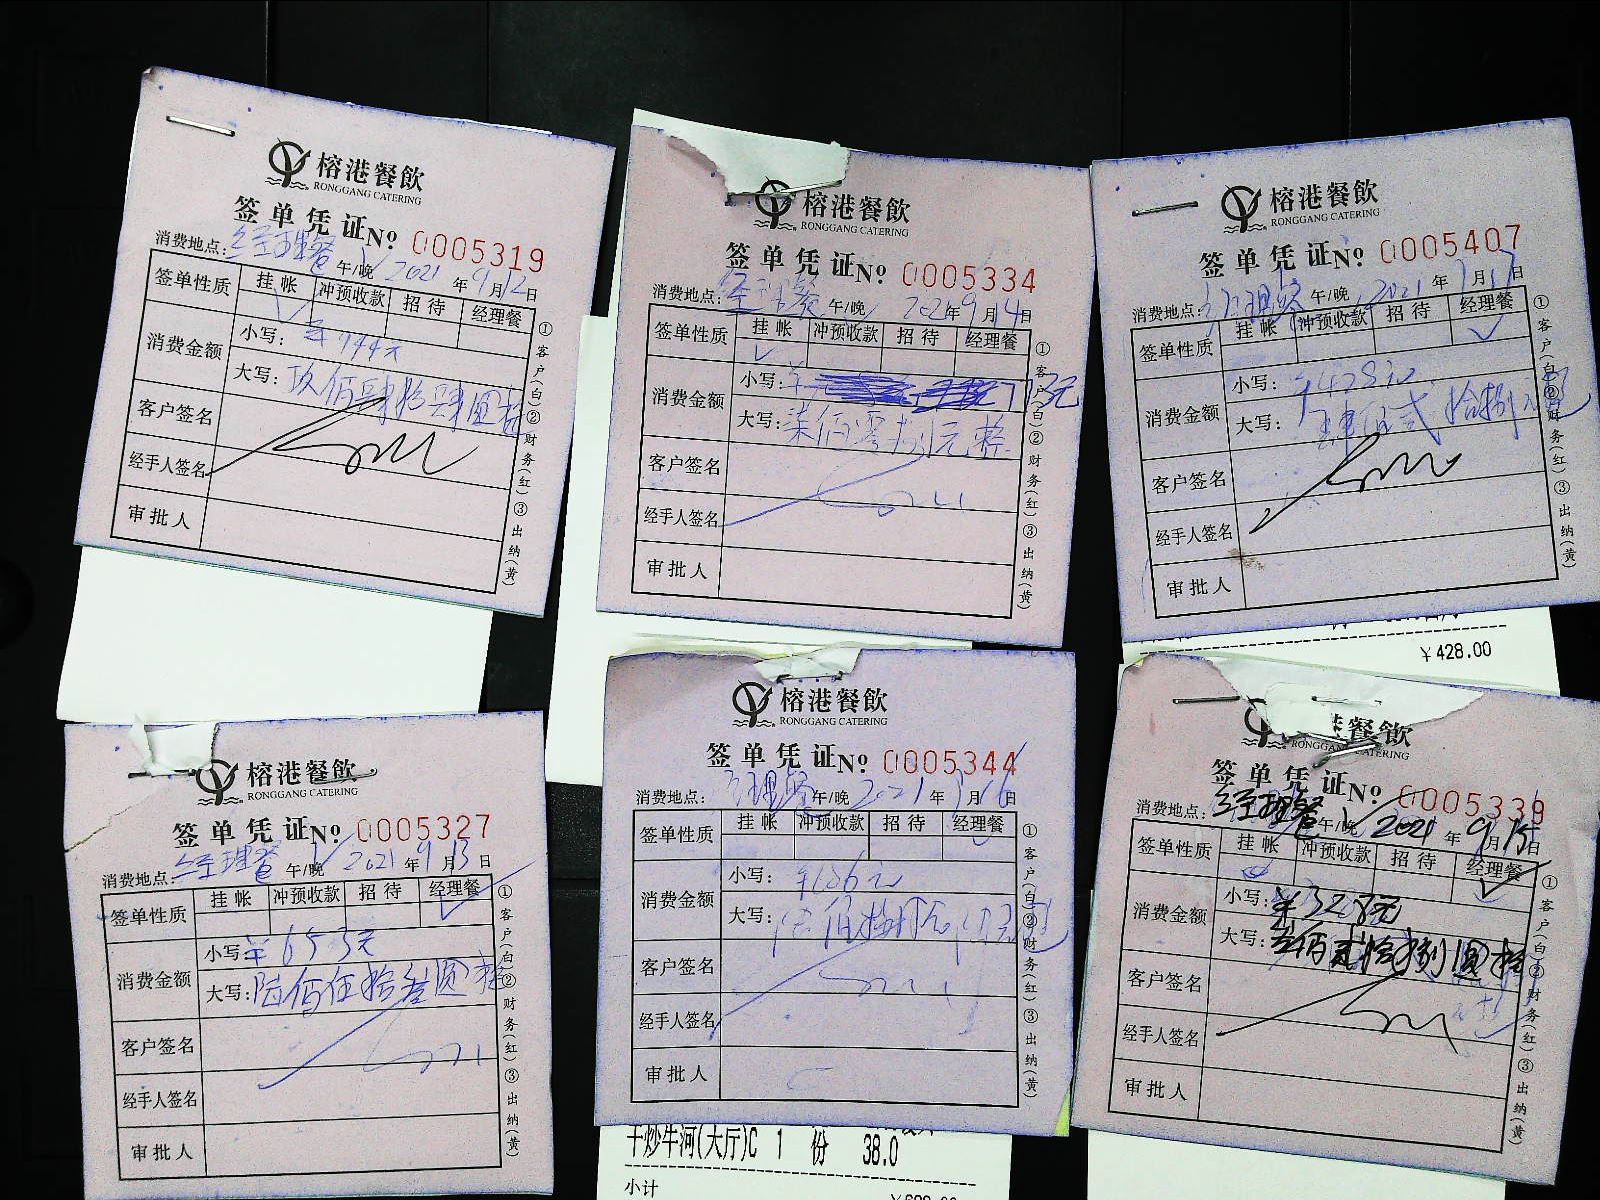 榕港餐飲
RONGGANG CATERING
签单凭证№ 0005319
消费地点: 经理餐 午/晚 2021年9月12日
签单性质 挂帐 冲预收款 招待 经理餐
消费金额 小写: ¥944元
大写: 玖佰肆拾肆圆整
客户签名
经手人签名
审批人
①客户(白)②财务(红)③出纳(黄)
榕港餐飲
RONGGANG CATERING
签单凭证№ 0005334
消费地点: 经理餐 午/晚 2021年9月14日
签单性质 挂帐 冲预收款 招待 经理餐
消费金额 小写: ¥
大写: 柒佰零捌元整
客户签名
经手人签名
审批人
①客户(白)②财务(红)③出纳(黄)
榕港餐飲
RONGGANG CATERING
签单凭证№ 0005407
消费地点: 经理餐 午/晚 2021年9月17日
签单性质 挂帐 冲预收款 招待 经理餐
消费金额 小写: ¥428元
大写: 肆佰贰拾捌
客户签名
经手人签名
审批人
①客户(白)②财务(红)③出纳(黄)
¥428.00
榕港餐飲
RONGGANG CATERING
签单凭证№ 0005327
消费地点: 经理餐 午/晚 2021年9月13日
签单性质 挂帐 冲预收款 招待 经理餐
消费金额 小写: ¥653元
大写: 陆佰伍拾叁圆整
客户签名
经手人签名
审批人
①客户(白)②财务(红)③出纳(黄)
榕港餐飲
RONGGANG CATERING
签单凭证№ 0005344
消费地点: 经理餐 午/晚 2021年9月16日
签单性质 挂帐 冲预收款 招待 经理餐
消费金额 小写:
大写:
客户签名
经手人签名
审批人
①客户(白)②财务(红)③出纳(黄)
干炒牛河(大厅)C 1 份 38.0
小计
港餐飲
RONGGANG CATERING
签单凭证№ 0005339
消费地点: 经理餐 午/晚 2021年9月15日
签单性质 挂帐 冲预收款 招待 经理餐
消费金额 小写: ¥328元
大写: 叁佰贰拾捌圆整
客户签名
经手人签名
审批人
①客户(白)②财务(红)③出纳(黄)